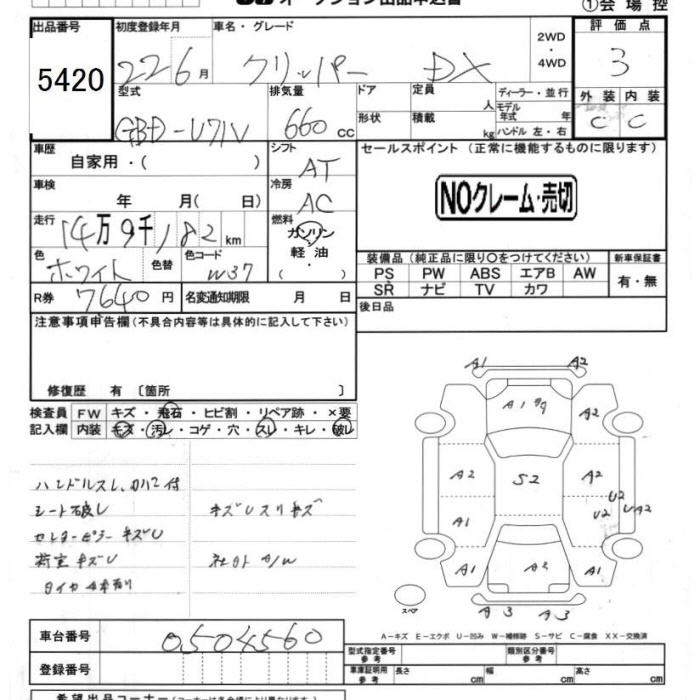 ①会場控
出品番号
5420
初度登録年月
22 6月
車名・グレード
クリッパー DX
2WD
・
4WD
評価点
3
外装 内装
C C
型式
GBD-U71V
排気量
660 CC
ドア
形状
定員
人
積載
kg
ディーラー・並行
モデル年式 年
ハンドル 左・右
車歴
自家用・( )
シフト
AT
セールスポイント (正常に機能するものに限ります)
NOクレーム・売切
車検
年 月( 日)
冷房
AC
走行
14万9千182km
燃料
ガソリン
軽油
・
( )
色
ホワイト
色替
色コード
W37
R券
7640円
名変通知期限 月 日
装備品 (純正品に限り○をつけてください)
新車保証書
PS PW ABS エアB AW
有・無
SR ナビ TV カワ
後日品
注意事項申告欄(不具合内容等は具体的に記入して下さい)
修復歴 有 〔箇所 〕
検査員 FW キズ・飛石・ヒビ割・リペア跡・×要
記入欄 内装 キズ・汚レ・コゲ・穴・スレ・キレ・破レ
シート破レ
キズUスリキズ
センターピラーキズU
荷室キズU
A1 A2
A1
A2
A2 S2 A2
U2
A1 U2 UA2
A1 A2 A1
スペア
A3 A3
A-キズ E-エクボ U-凹み W-補修跡 S-サビ C-腐食 XX-交換済
車台番号
0504560
型式指定番号
参考
類別区分番号
参考
登録番号
車庫証明用
参考
長さ cm 幅 cm 高さ cm